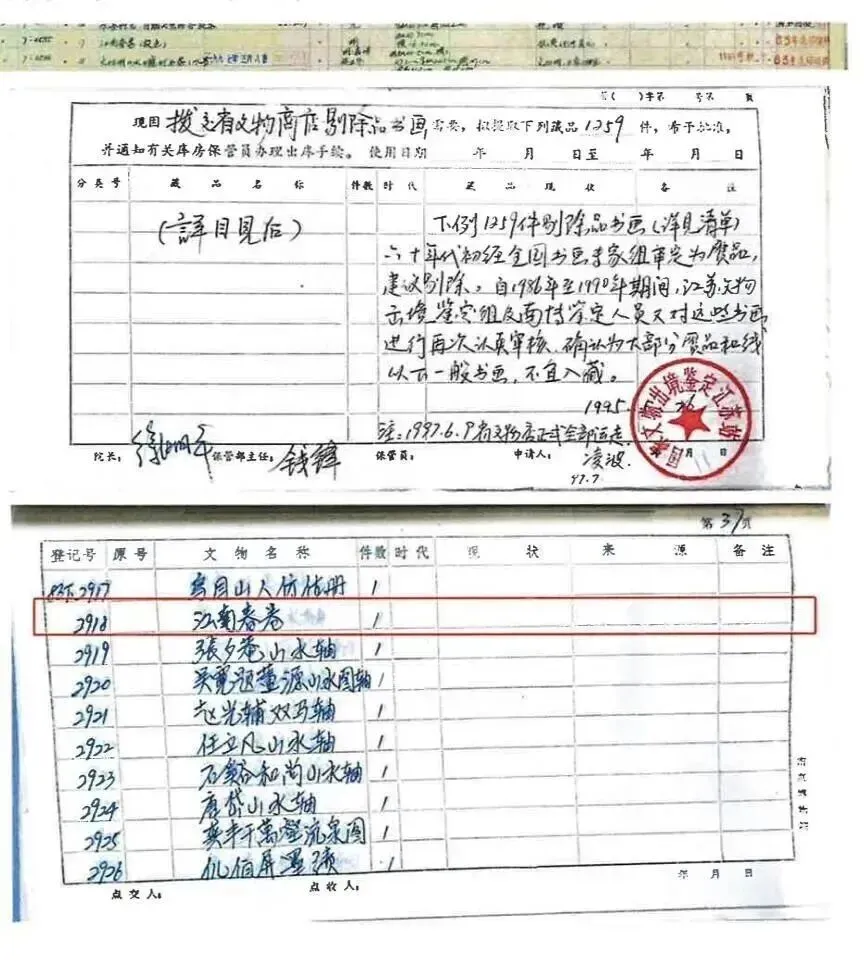 第( )字第 号第 页
现因 拨交省文物商店剔除品书画 需要，拟提取下列藏品 1259 件，希予批准。
并通知有关库房保管员办理出库手续。 使用日期 年 月 日至 年 月 日
分类号 藏品名称 件数 时代 藏品现状 备注
(詳目見后)
下列1259件剔除品书画(详见清单)
六十年代初经全国书画专家组审定为赝品，
建议剔除。自1986年至1990年期间，江苏文物
出境鉴定组及南博鉴定人员又对这些书画
进行再次认真审核，确认为大部分赝品和线
以下一般书画，不宜入藏。
1995. 26
注：1997.6.9省文物店正式全部运走
院长： 徐湖平 保管部主任： 钱锋 保管员： 申请人： 凌波 月 日
97.7
国家文物出境鉴定江苏站
第37页
登记号 原号 文物名称 件数 时代 现状 来源 备注
2917 烏目山人仿古册 1
2918 江南春卷 1
2919 張夕菴山水轴 1
2920 吴寬题董源山水图轴 1
2921 赵光辅双马轴 1
2922 任立凡山水轴 1
2923 石溪和尚山水轴 1
2924 唐岱山水轴 1
2925 千萬壑流泉图 1
2926 1
年 月 日
点交人： 点收人：